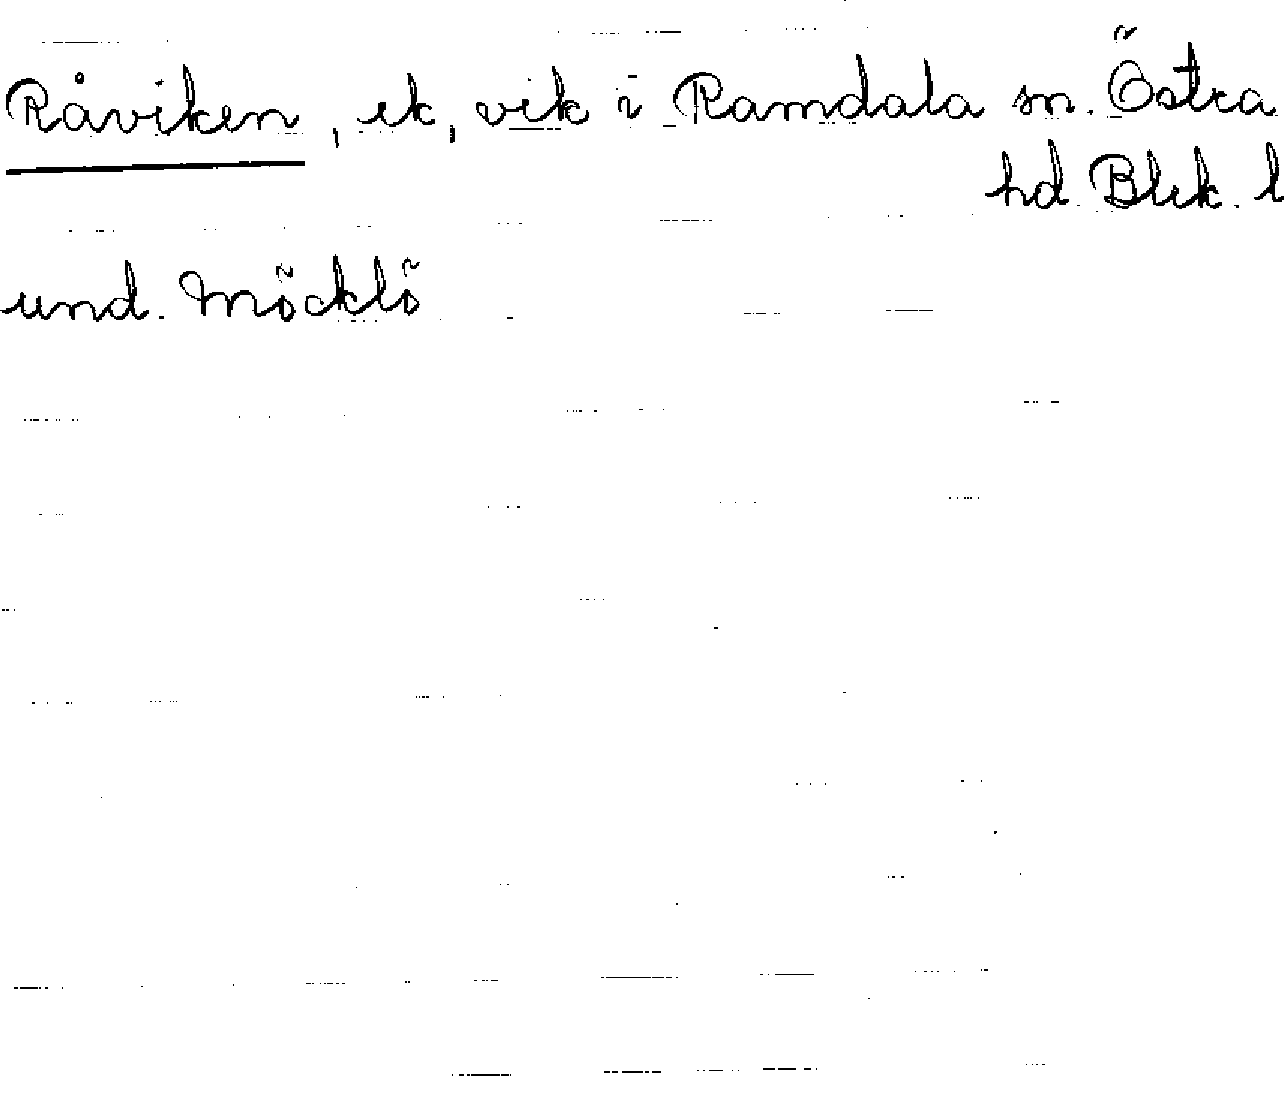 Råviken, ek, vik i Ramdala sn. Östra
hd. Blek. l
und. Möcklö